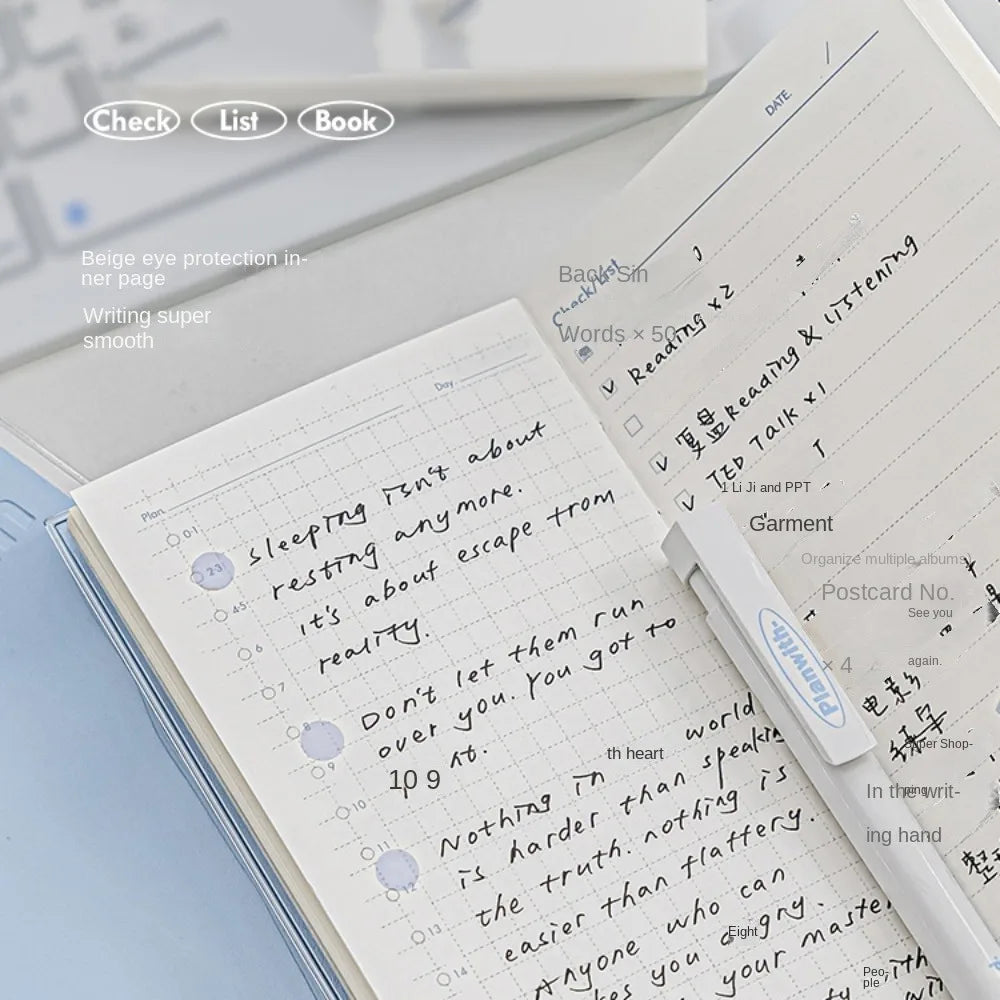 Check List Book
Beige eye protection in-
ner page
Writing super
smooth
DATE.
Check/List
Back Sin
Words × 50
Reading ×2
复盘 Reading & Listening
TED Talk ×1
1 Li Ji and PPT
Garment
Organize multiple albums)
Postcard No.
See you
× 4
again.
电影
Super Shop-
ping
In the writ-
ing hand
整
Planwith-
Plan
Day
0-1
2-3
4-5
6
7
8
9
10
11
12
13
14
sleeping isn't about
resting anymore.
it's about escape from
reality.
Don't let them run
over you. You got to
10 9
th heart
Nothing in world
is harder than speakin
the truth. nothing is
easier than flattery.
Anyone who can
kes you gry.
Eight
your master
Peo-
ple